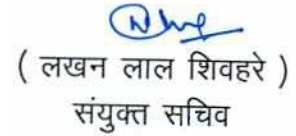 ( लखन लाल शिवहरे )
संयुक्त सचिव